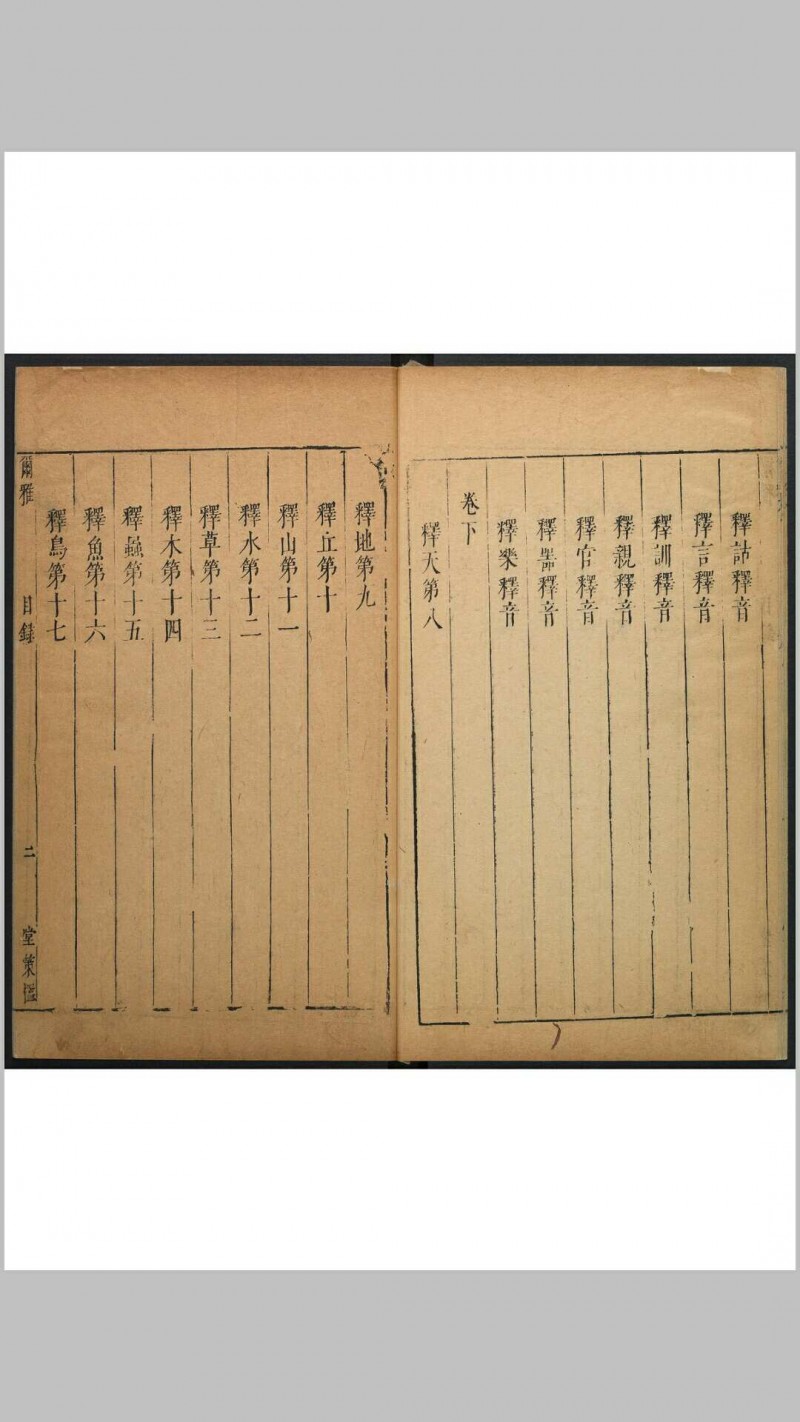 釋詁釋音
釋言釋音
釋訓釋音
釋親釋音
釋宫釋音
釋器釋音
釋樂釋音
卷下
釋天第八
釋地第九
釋丘第十
釋山第十一
釋水第十二
釋草第十三
釋木第十四
釋蟲第十五
釋魚第十六
釋鳥第十七
爾雅 目録 二 堂策檻